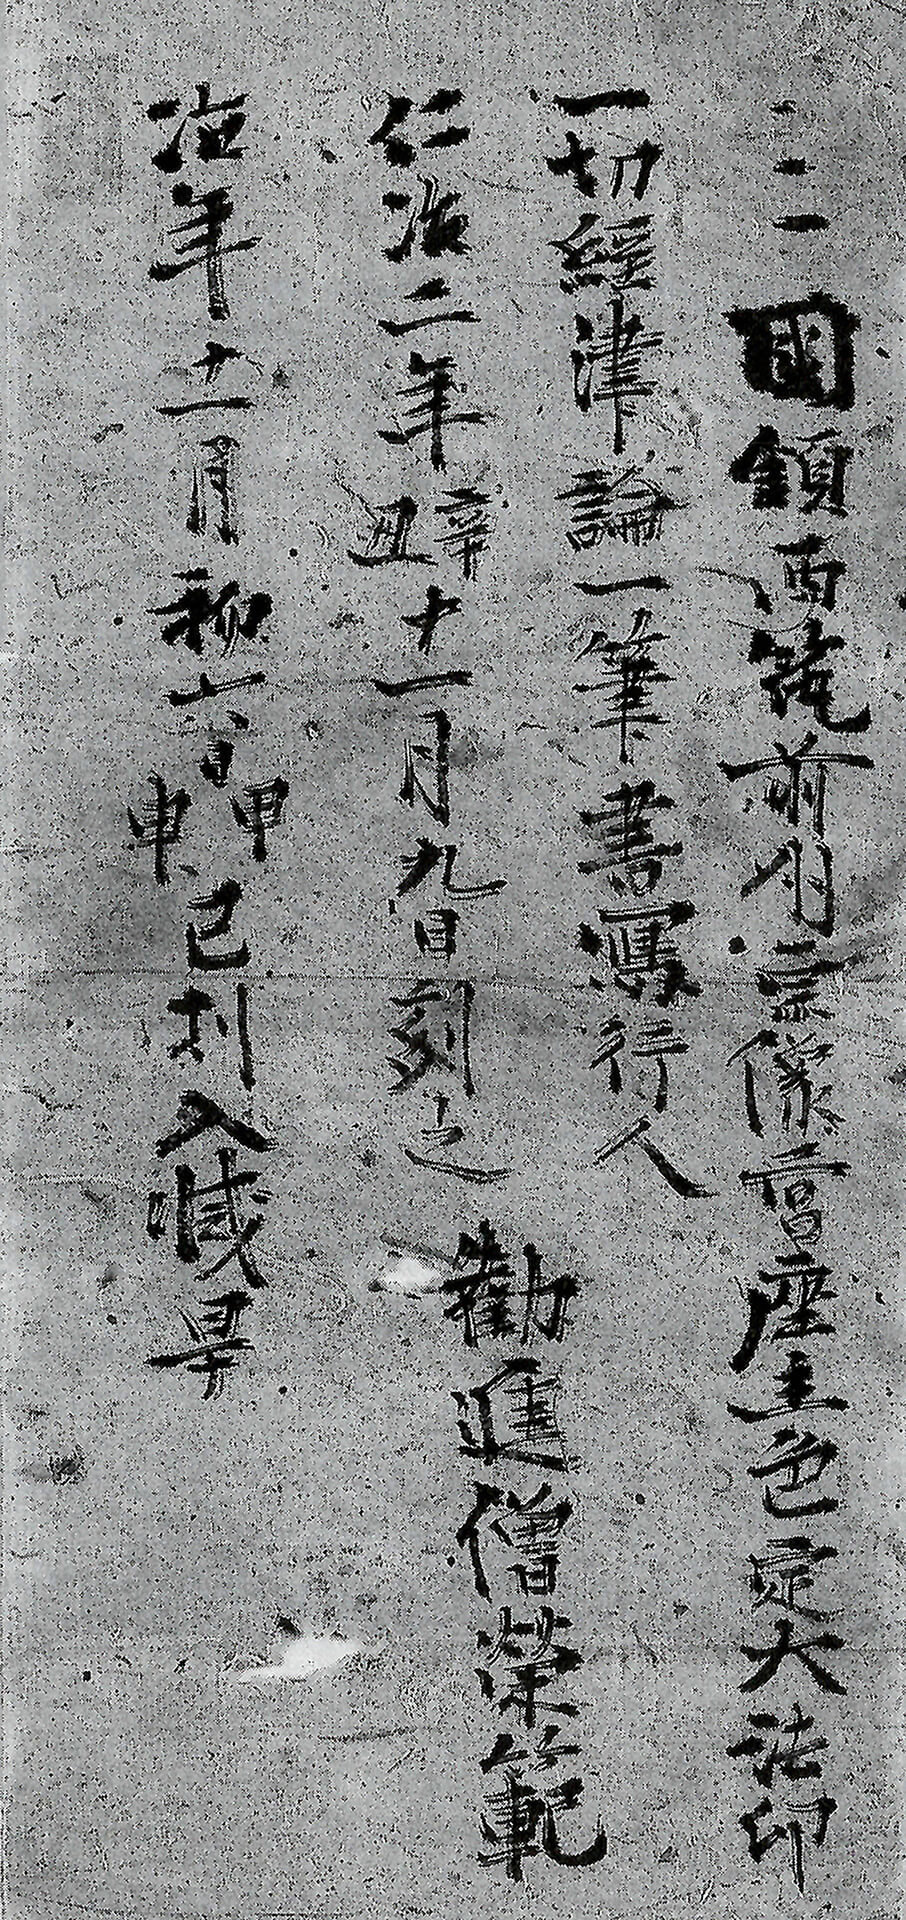 三國鎮西筑前州宗像宮座主色定大法印
一切經律論一筆書寫行人
仁治二年辛丑十一月九日刻之 勸進僧榮範
治年十一月初六日甲申巳刻入滅畢